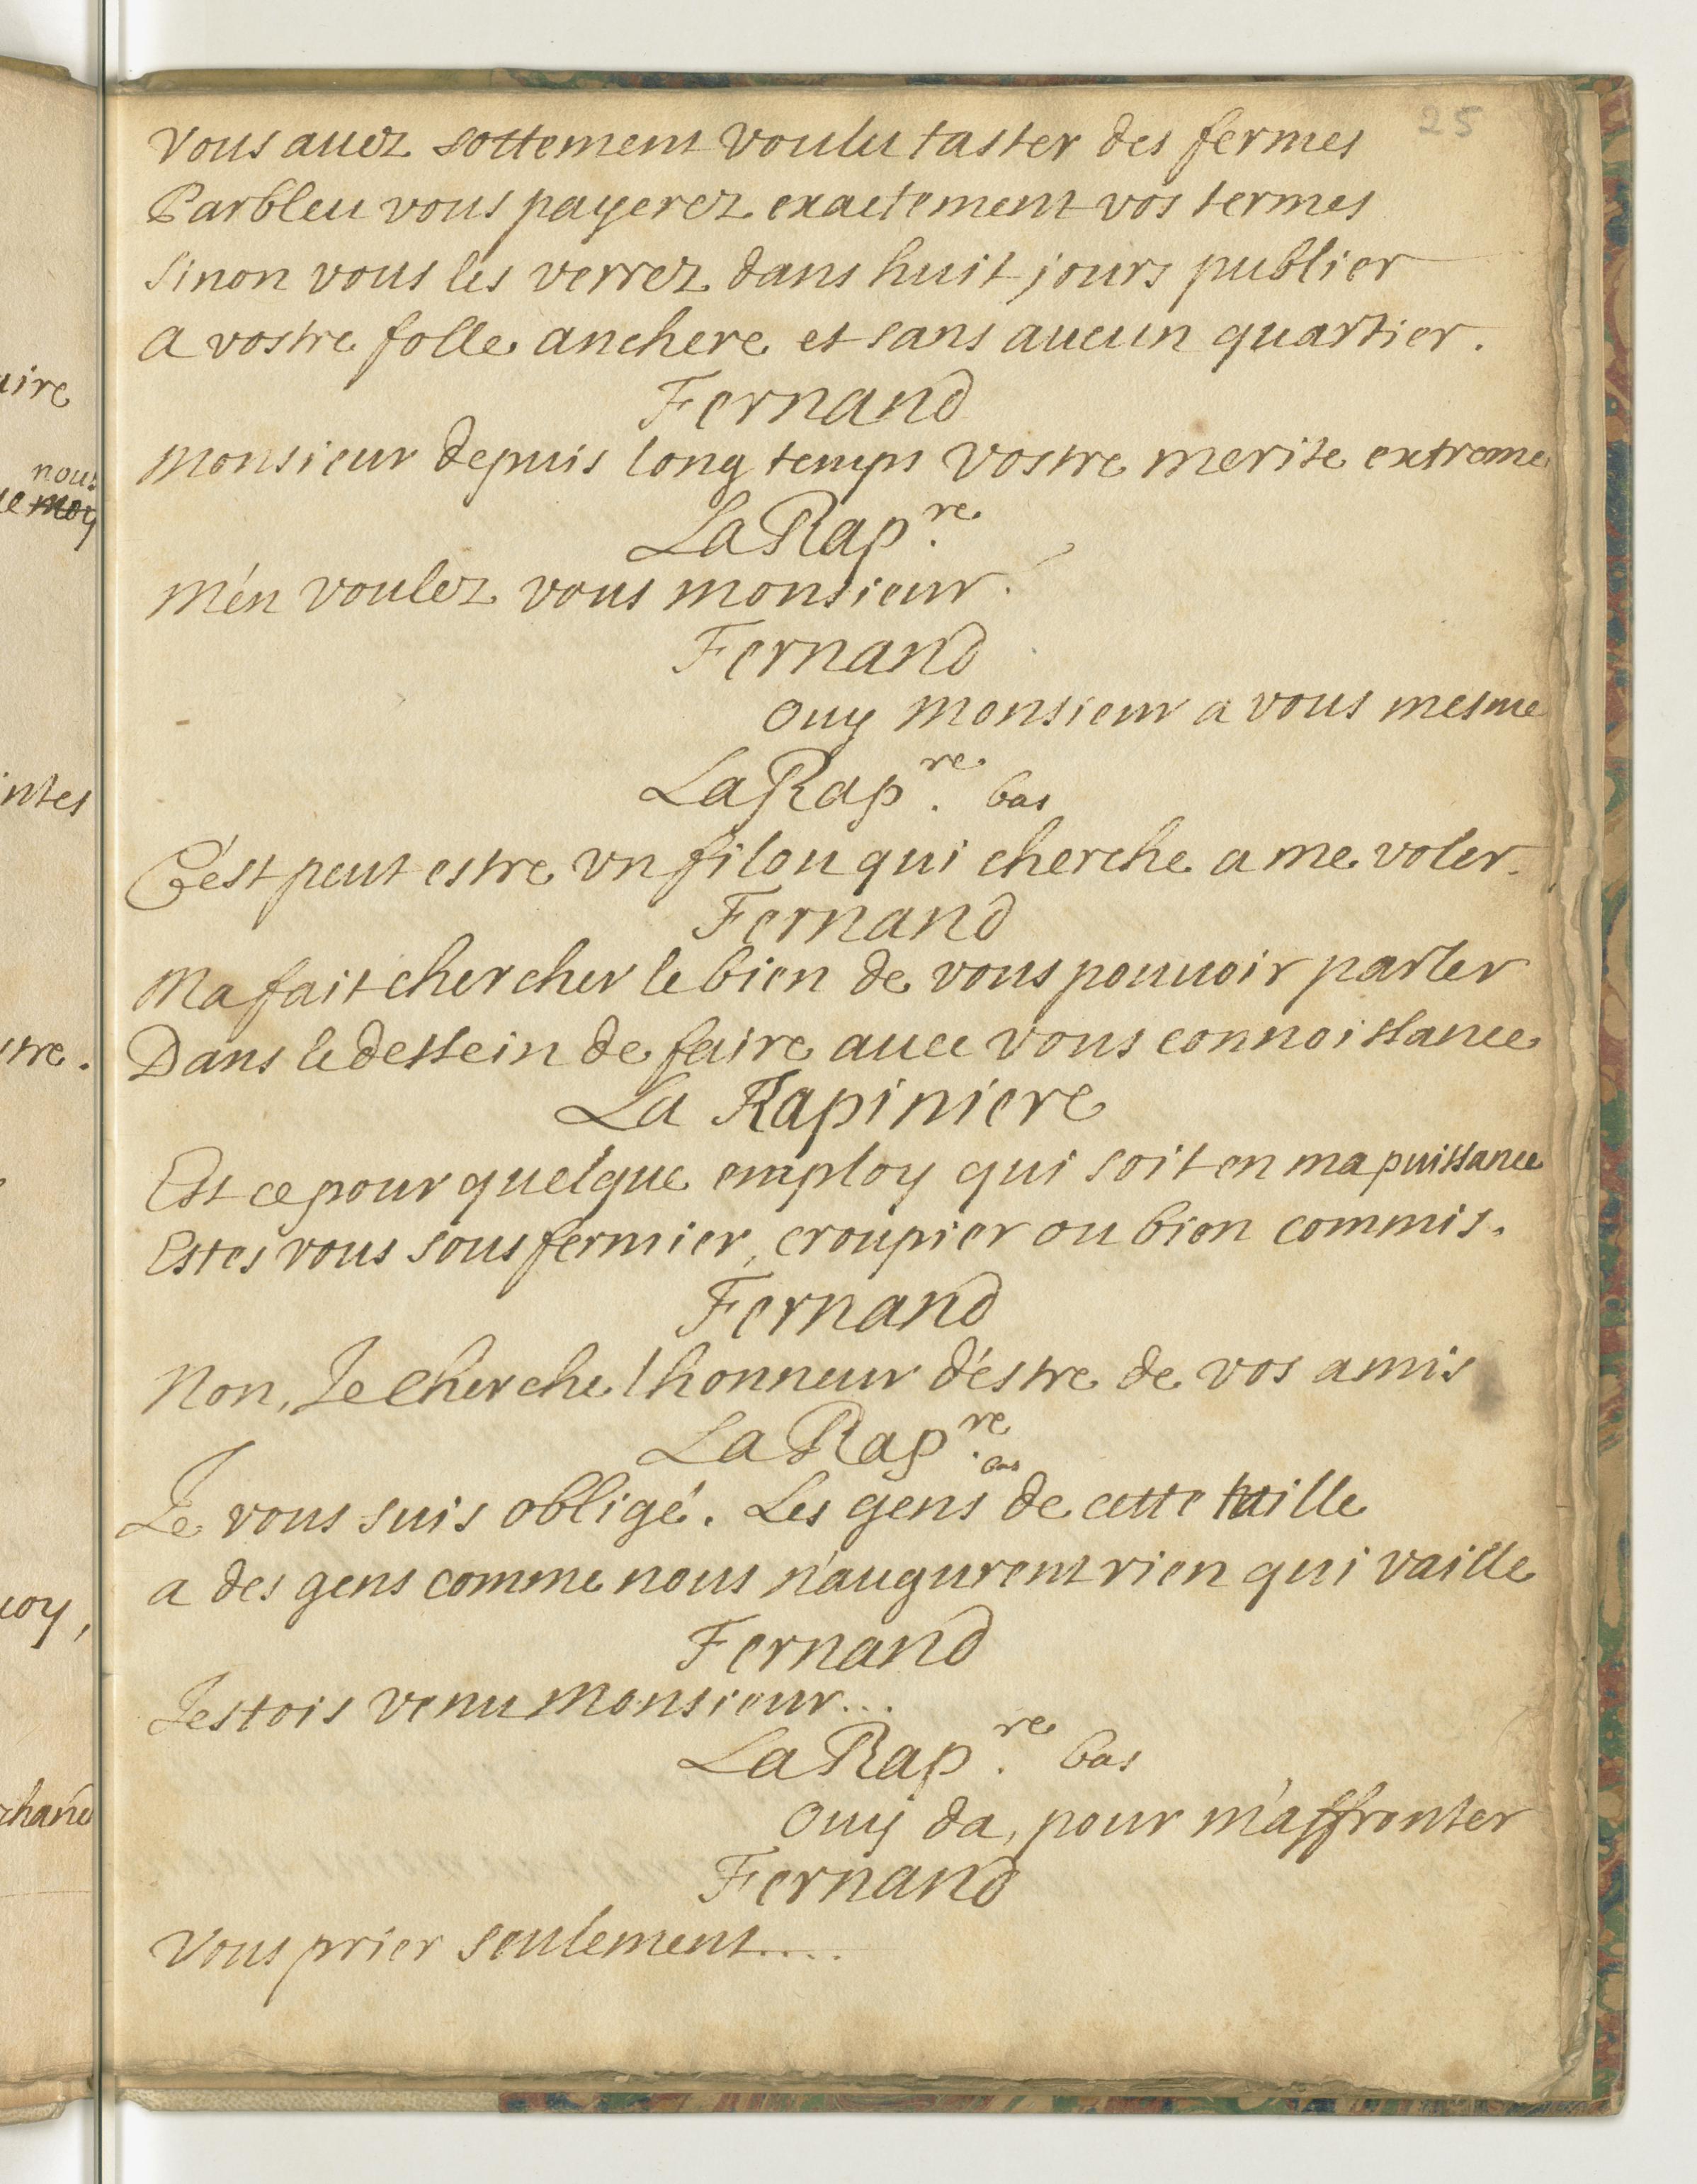 25
Vous auez sottement voulu taster des fermes
Parbleu vous payerez exactement vos termes
Sinon vous les verrez dans huit jours publier
a vostre folle anchere et sans aucun quartier.
Fernand
Monsieur depuis long temps vostre merite extreme
La Rap.re
M'en voulez vous monsieur.
Fernand
Ouy Monsieur a vous mesme
La Rap.re bas
C'est peut estre vn filou qui cherche a me voler.
Fernand
Ma fait chercher le bien de vous pouuoir parler
Dans le dessein de faire auec vous connoissance
La Rapiniere
Est ce pour quelque employ qui soit en ma puissance
Estes vous sous fermier, croupier ou bien commis.
Fernand
Non, Je cherche l honneur d'estre de vos amis
La Rap.re
bas
Je vous suis obligé. Les gens de cette taille
a des gens comme nous n'augurent rien qui vaille
Fernand
Jestois venu Monsieur...
La Rap.re bas
Ouy da, pour m'affronter
Fernand
Vous prier seulement....
aire
nous
moy
intes
stre.
uoy,